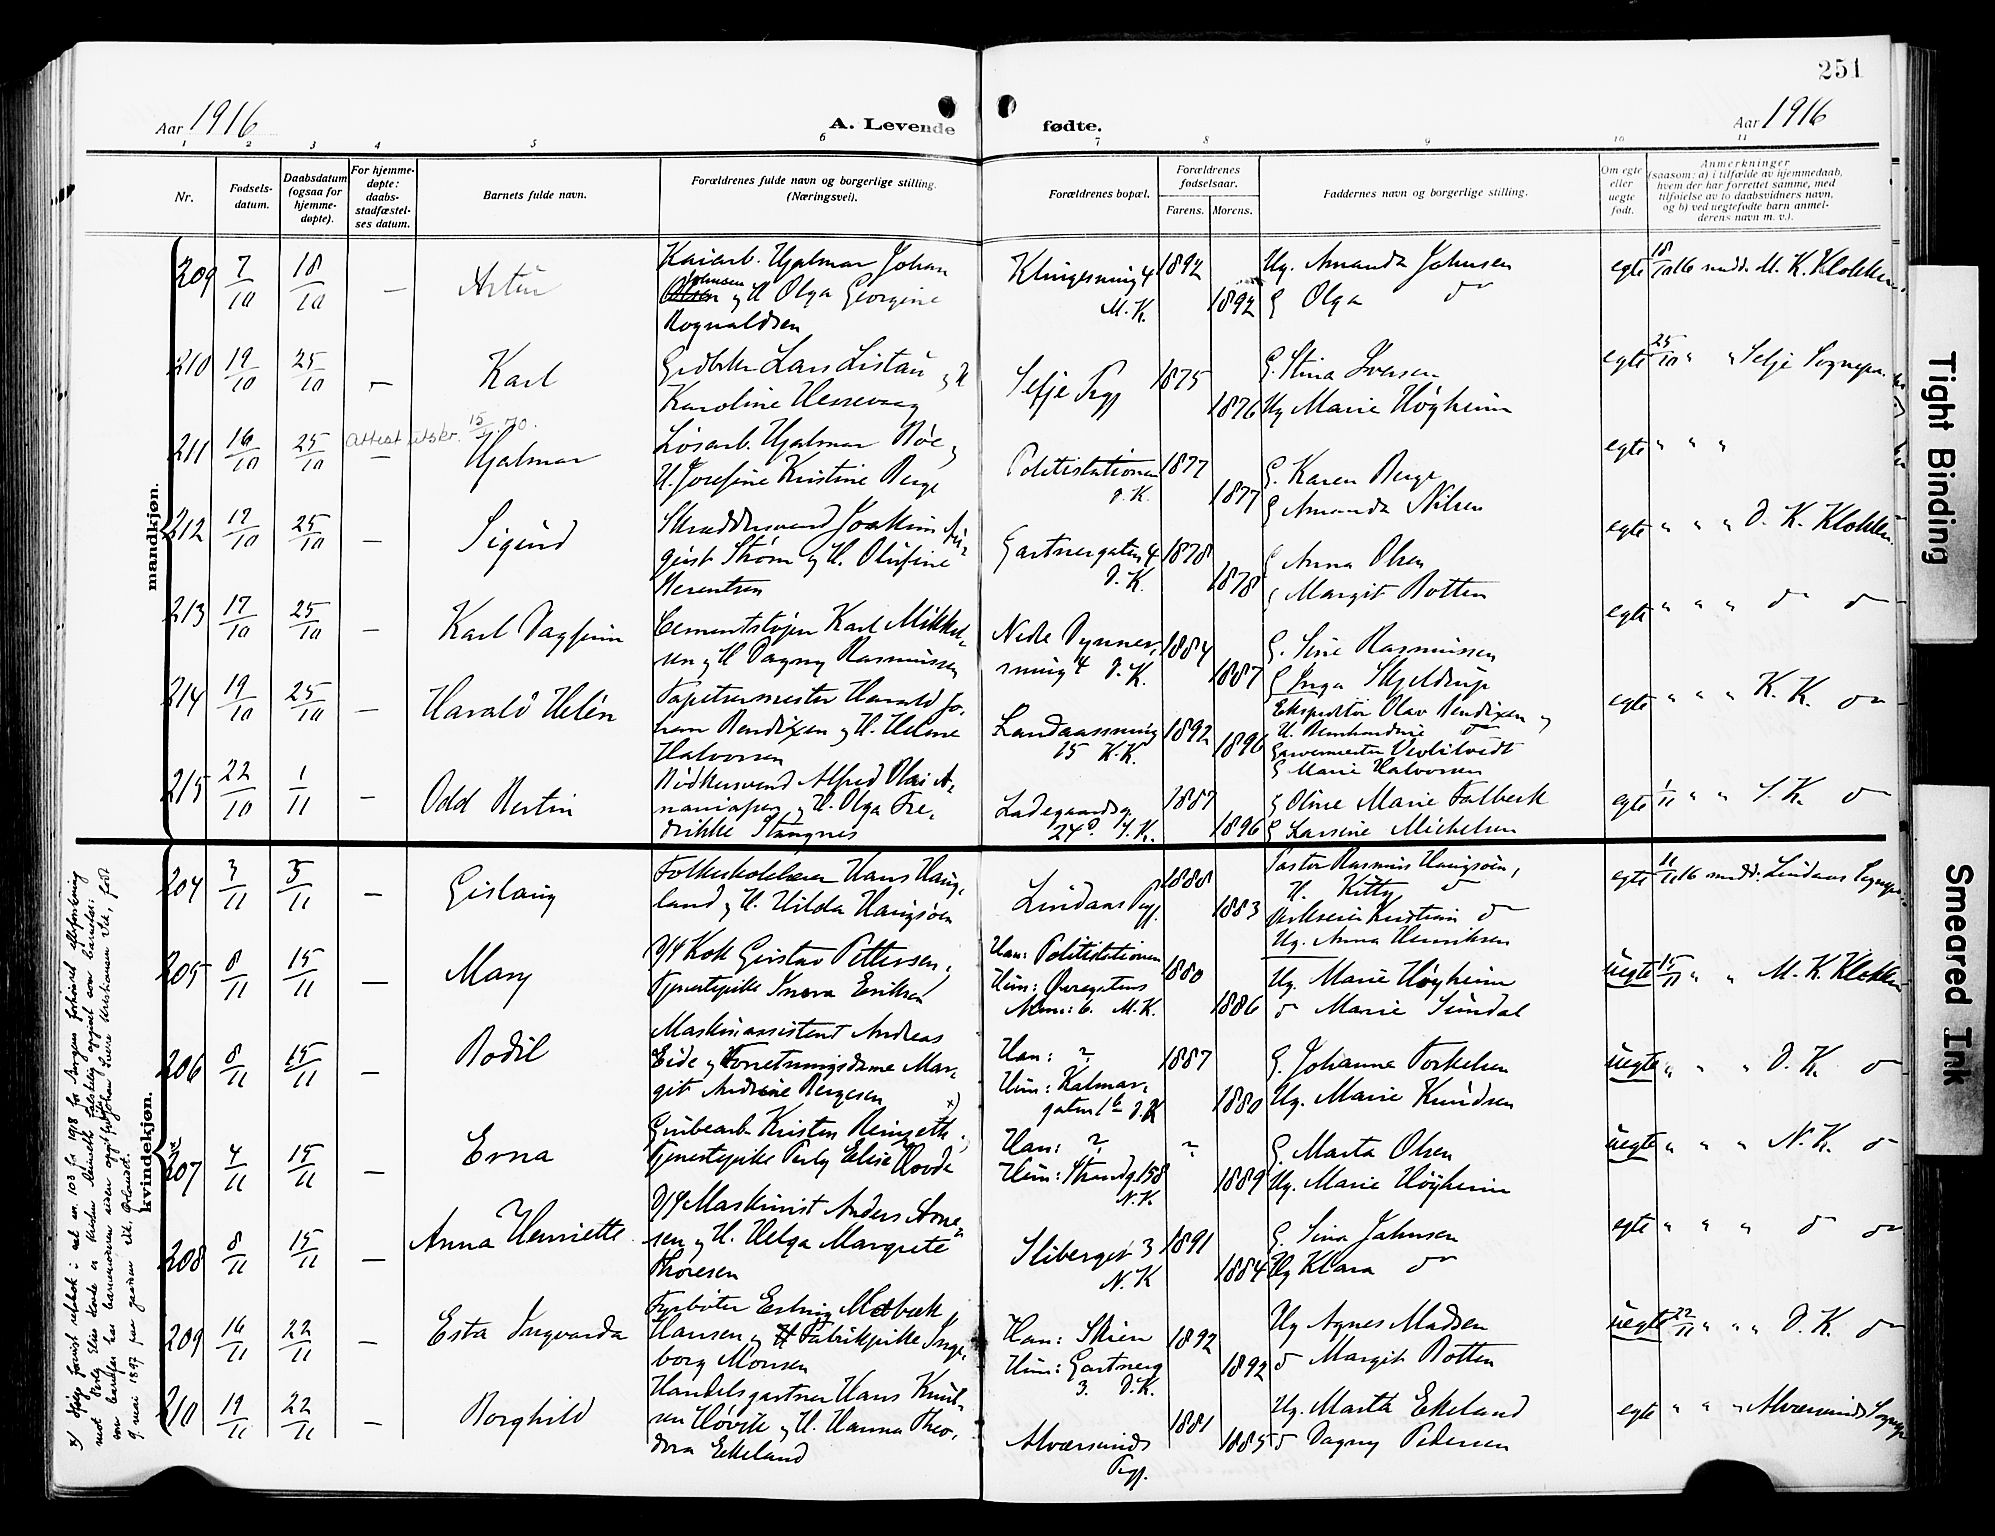 251
Aar 1916
A. Levende fødte.
Aar 1916
1 2 3 4 5 6 7 8 9 10 11
Nr.
Fødsels-
datum.
Daabsdatum
(ogsaa for
hjemme-
døpte).
For hjemme-
døpte:
daabs-
stadfæstel-
ses datum.
Barnets fulde navn.
Forældrenes fulde navn og borgerlige stilling.
(Næringsvei).
Forældrenes bopæl.
Forældrenes
fødselsaar.
Farens. Morens.
Faddernes navn og borgerlige stilling.
Om egte
eller
uegte
født.
Anmerkninger
(saasom: a) i tilfælde av hjemmedaab,
hvem der har forrettet samme, med
tilføielse av to daabsvidners navn,
og b) ved uegtefødte barn anmel-
derens navn m. v.).
mandkjøn.
209 7/10 18/10 — Artur
Kaiarb. Hjalmar Johan
Johnsen
Olsen og H Olga Georgine
Rognaldsen
Klingesmug 4
M. K.
1892 1892
Ug. Amanda Johnsen
G Olga do
egte 18/10 16 medd. M. K. Klokker
210 19/10 25/10 — Karl
Gedbder Lars Listau og H
Karoline Hessevaag
Selje Pgj 1875 1876
G. Stina Iversen
Ug Marie Høyheim
egte 25/10 " " Selje Sognepr.
Attest utskr. 15/1.70.
211 16/10 25/10 — Hjalmar
Løsarb. Hjalmar Røe og
H. Josefine Kristine Berge
Politistationen
D. K.
1877 1877
G. Karen Berge
G Amanda Nilsen
egte " " "
212 17/10 25/10 — Sigurd
Skræddersvend Joakim Au-
gust Strøm og H. Olufine
Berentsen
Gartnergaten 4
D. K.
1878 1878
G Anna Olsen
G Margit Botten
egte " " " D. K. Klokker
213 17/10 25/10 — Karl Dagfinn
Cementstøper Karl Mikkel-
sen og H Dagny Rasmussen
Nedre Dynner-
smug 4 D. K.
1884 1887
G. Sine Rasmussen
G Inga Skjeldrup
egte " " " do do
214 19/10 25/10 — Harald Helén
Tapetsermester Harald Jo-
han Bendixen og H. Helene
Halvorsen
Landaassmug
15 K.K.
1892 1896
Ekspeditør Olav Bendixen og
H. Bernhardine do
Garvermester
G Marie Halvorsen
egte " " " K. K. do
215 22/10 1/11 — Odd Bertin
Bødkersvend Alfred Olai A-
naniassen og H. Olga Fre-
drikke Stangnes
Ladegaardsg.
24 D. S. K.
1887 1896
G Oline Marie Falbeck
G Larsine Michelsen
egte 1/11 " " S. K. do
kvindekjøn.
204 3/11 5/11 — Gislaug
Folkeskolelærer Hans Haug-
land og H. Hilda Haugsøen
Lindaas Pgj. 1888 1883
Pastor Rasmus Haugsøen,
H. Kitty do
Kristian do
Ug. Anna Henriksen
egte 11/11 16 medd. Lindaas Sognepr.
205 8/11 15/11 — Mary
D/4 Kok Gustav Pettersen,
Tjenestepike Snora Eriksen
Han: Politistationen
Hun: Øvregatens
Alm: 6. M. K.
1880 1886
Ug. Marie Høyheim
do Marie Sundal
uegte 15/11 " " M. K. Klokker
206 8/11 15/11 — Bodil
Maskinassistent Andreas
Eide og Forretningsdame Mar-
git Andreine Bergesen
Han: ?
Hun: Kalmar-
gaten 1b D. K
1887 1880
G. Johanne Torkelsen
Ug. Marie Knudsen
uegte " " " D. K. do
207 4/11 15/11 — Erna
Grubearb. Kristen Reinseth x)
Tjenestepike Perly Elise Hovde
Han: ?
Hun: Strandg. 158
N. K.
? 1889
G Marta Olsen
Ug. Marie Høyheim
uegte " " " N. K. do
208 8/11 15/11 — Anna Henriette
D/4 Maskinist Anders Arne-
sen og H. Helga Margrete
Thoresen
Sliberget 3
N. K
1891 1884
G. Sina Johnsen
Ug Klara do
egte " " " do do
209 16/11 22/11 — Esta Ingvarda
Fyrbøter Erling Melbæk
Hansen og Fabrikpike Inge-
borg Monsen
Han: Skien
Hun: Gartnerg
3. D. K.
1892 1892
Ug Agnes Madsen
do Margit Botten
uegte 22/11 " " " D. K. do
210 19/11 22/11 — Borghild
Handelsgartner Hans Knud-
sen Høvik og H. Hanna Theo-
dora Ekeland
Alværsunds
Pgj.
1881 1885
Ug. Marta Ekeland
do Dagny Pedersen
egte " " " Alværsunds Sognepr
Tight Binding
Smeared Ink